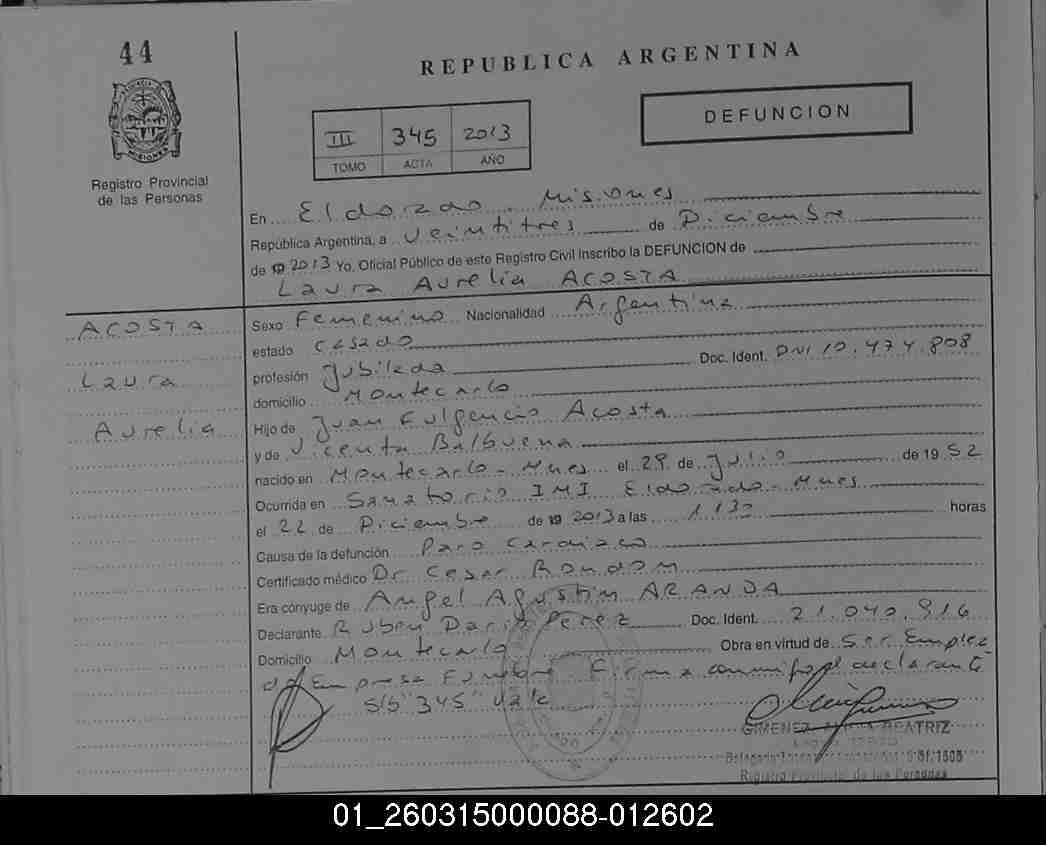 44
REPUBLICA ARGENTINA
DEFUNCION
III 345 2013
TOMO ACTA AÑO
Registro Provincial
de las Personas
En Eldorado Misiones
República Argentina, a Veintitres de Diciembre
de 2013 Yo, Oficial Público de este Registro Civil Inscribo la DEFUNCION de
Laura Aurelia ACOSTA
ACOSTA
Laura
Aurelia
Sexo Femenino Nacionalidad Argentina
estado casado
profesión Jubilada Doc. Ident. DNI 10.474.808
domicilio Montecarlo
Hijo de Juan Fulgencio Acosta
y de Vicenta Balbuena
nacido en Montecarlo - Mnes el 29 de Julio de 1952
Ocurrida en Sanatorio IMI Eldorado - Mnes
el 22 de Diciembre de 2013 a las 1:30 horas
Causa de la defunción Paro Cardiaco
Certificado médico Dr Cesar
Era cónyuge de Angel Agustin ARANDA
Declarante Ruben Dario Perez Doc. Ident. 21.040.916
Domicilio Montecarlo Obra en virtud de Ser Emplea
do Empresa Funebre Firma conmigo el declarante
S/b "345" vale
GIMENEZ BEATRIZ
Registro Provincial de las Personas
01_260315000088-012602